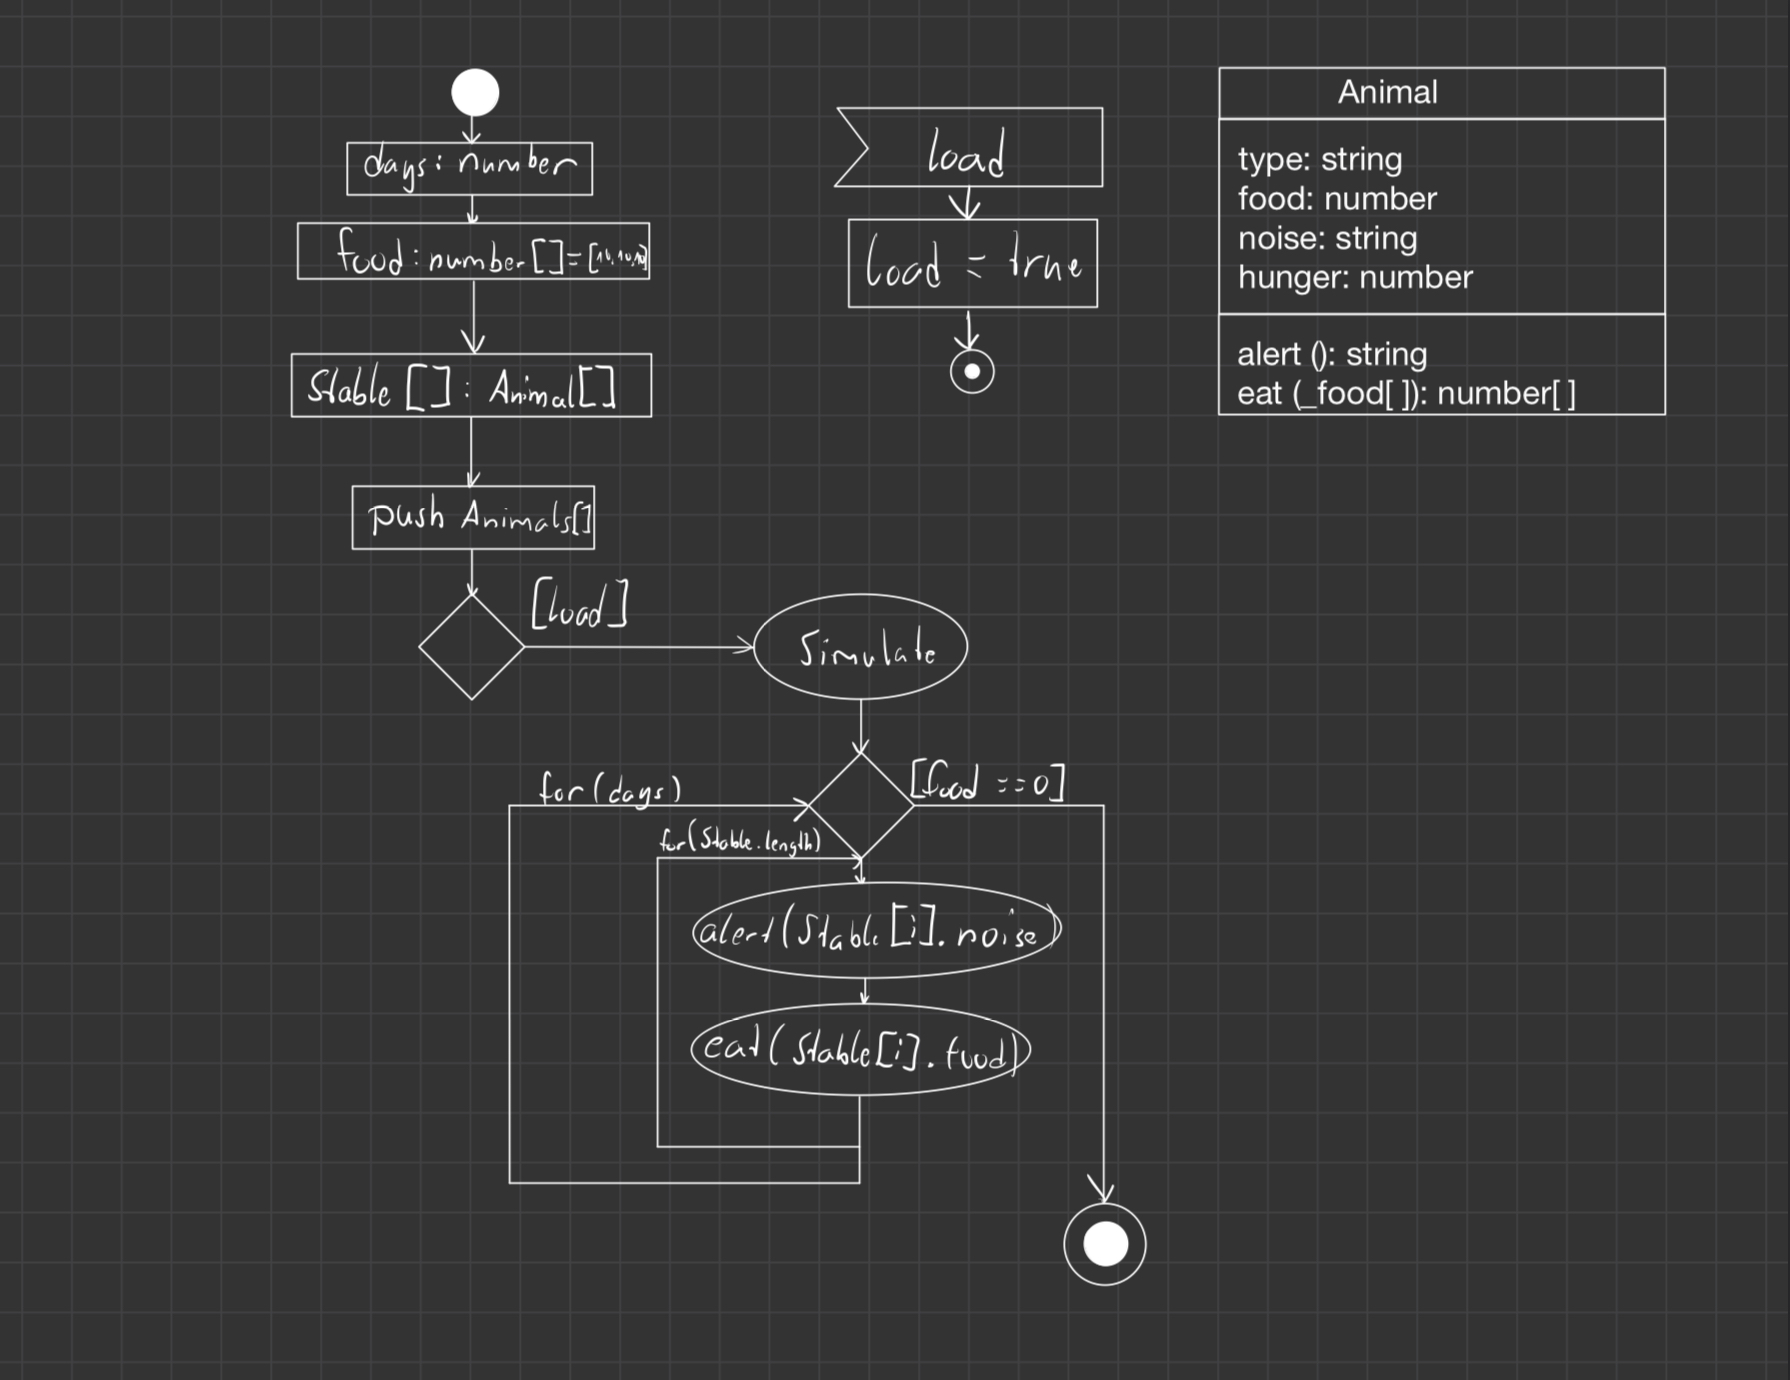 days: number
food: number[]=[10,10,10]
Stable []: Animal[]
push Animals[]
[load]
Simulate
for(days)
[food ==0]
for(Stable.length)
alert(Stable[i].noise)
eat(Stable[i].food)
load
load = true
Animal
type: string
food: number
noise: string
hunger: number
alert (): string
eat (_food[ ]): number[ ]